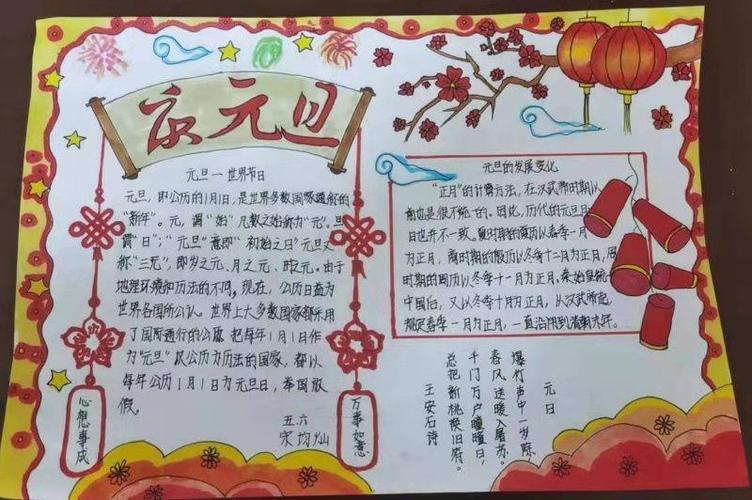 庆元旦
元旦—世界节日
元旦，即公历的1月1日，是世界多数国家通称的
"新年"。元，谓"始"凡数之始称为"元"。旦
谓"日"；"元旦"意即"初始之日"元旦又
称"三元"，即岁之元、月之元、时之元。由于
地理环境和历法的不同，现在，公历日益为
世界各国所公认。世界上大多数国家都采用
了国际通行的公历 把每年1月1日作
为"元旦"以公历为历法的国家，都以
每年公历1月1日为元旦日，举国放
假。
五.六
宋均灿
心想事成
万事如意
元旦的发展变化
"正月"的计算方法，在汉武帝时期以
前也是很不统一的。因此，历代的元旦
日也并不一致。夏时期的夏历以春季一月
为正月，商时期的殷历以冬季十二月为正月，周
时期的周历以冬季十一月为正月，秦始皇统一
中国后，又以冬季十月为正月，从汉武帝起，
规定春季一月为正月，一直沿用到清朝末年。
元日
爆竹声中一岁除，
春风送暖入屠苏。
千门万户曈曈日，
总把新桃换旧符。
王安石诗